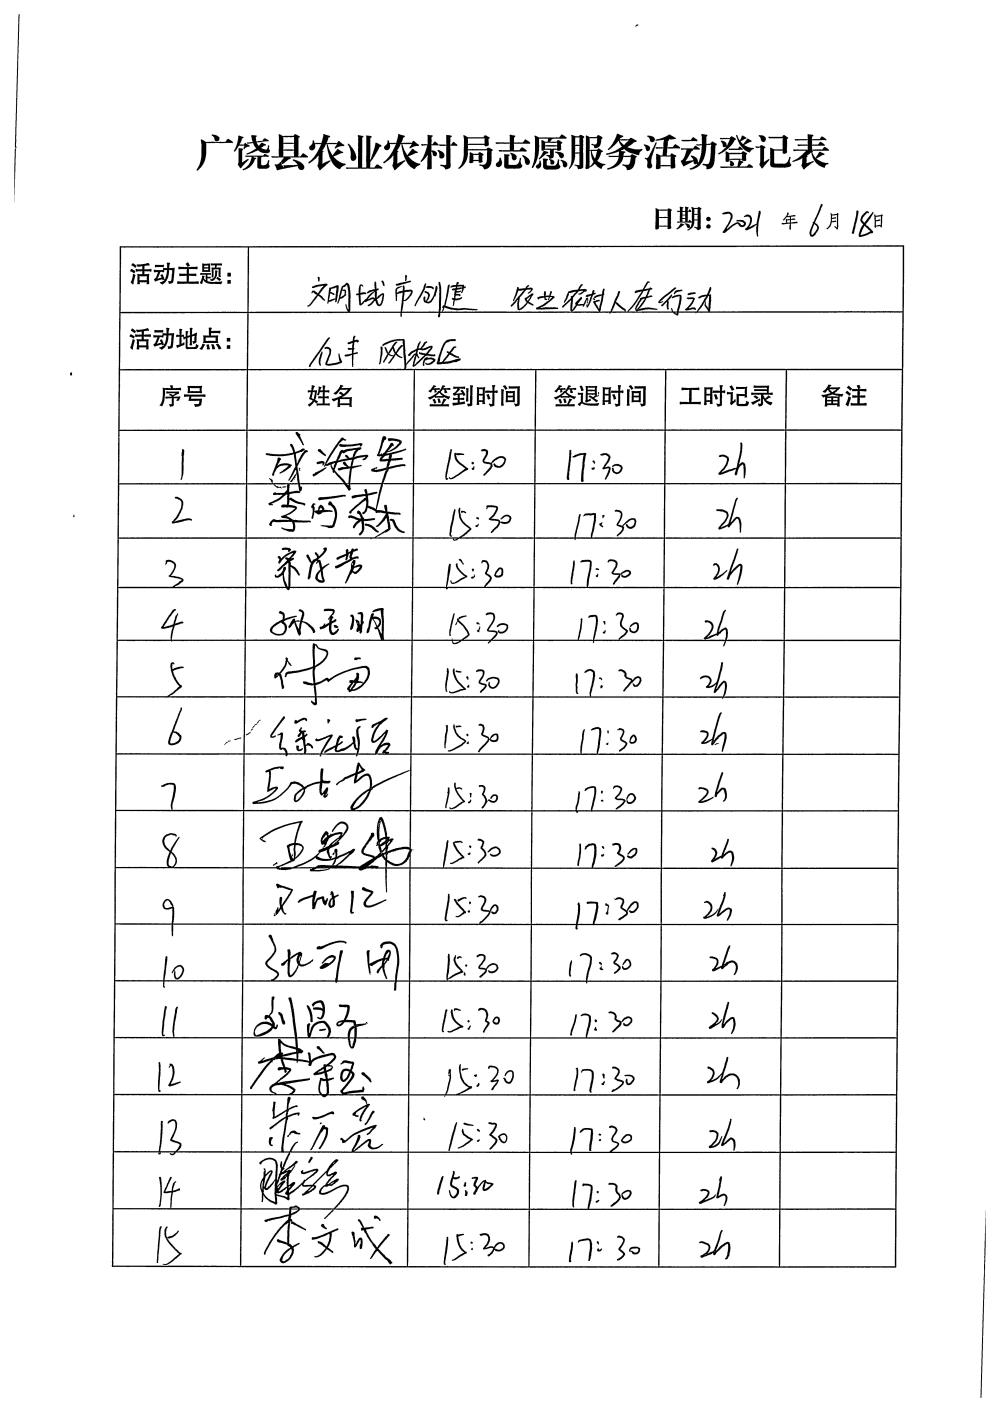 广饶县农业农村局志愿服务活动登记表
日期: 2021 年 6 月 18 日
活动主题: 文明城市创建 农业农村人在行动
活动地点: 亿丰 网格区
序号 姓名 签到时间 签退时间 工时记录 备注
1 成海军 15:30 17:30 2h
2 李何森 15:30 17:30 2h
3 15:30 17:30 2h
4 明 15:30 17:30 2h
5 15:30 17:30 2h
6 徐 15:30 17:30 2h
7 15:30 17:30 2h
8 王 15:30 17:30 2h
9 15:30 17:30 2h
10 张可 15:30 17:30 2h
11 刘昌 15:30 17:30 2h
12 李宝玉 15:30 17:30 2h
13 朱万亮 15:30 17:30 2h
14 滕 15:30 17:30 2h
15 李文成 15:30 17:30 2h